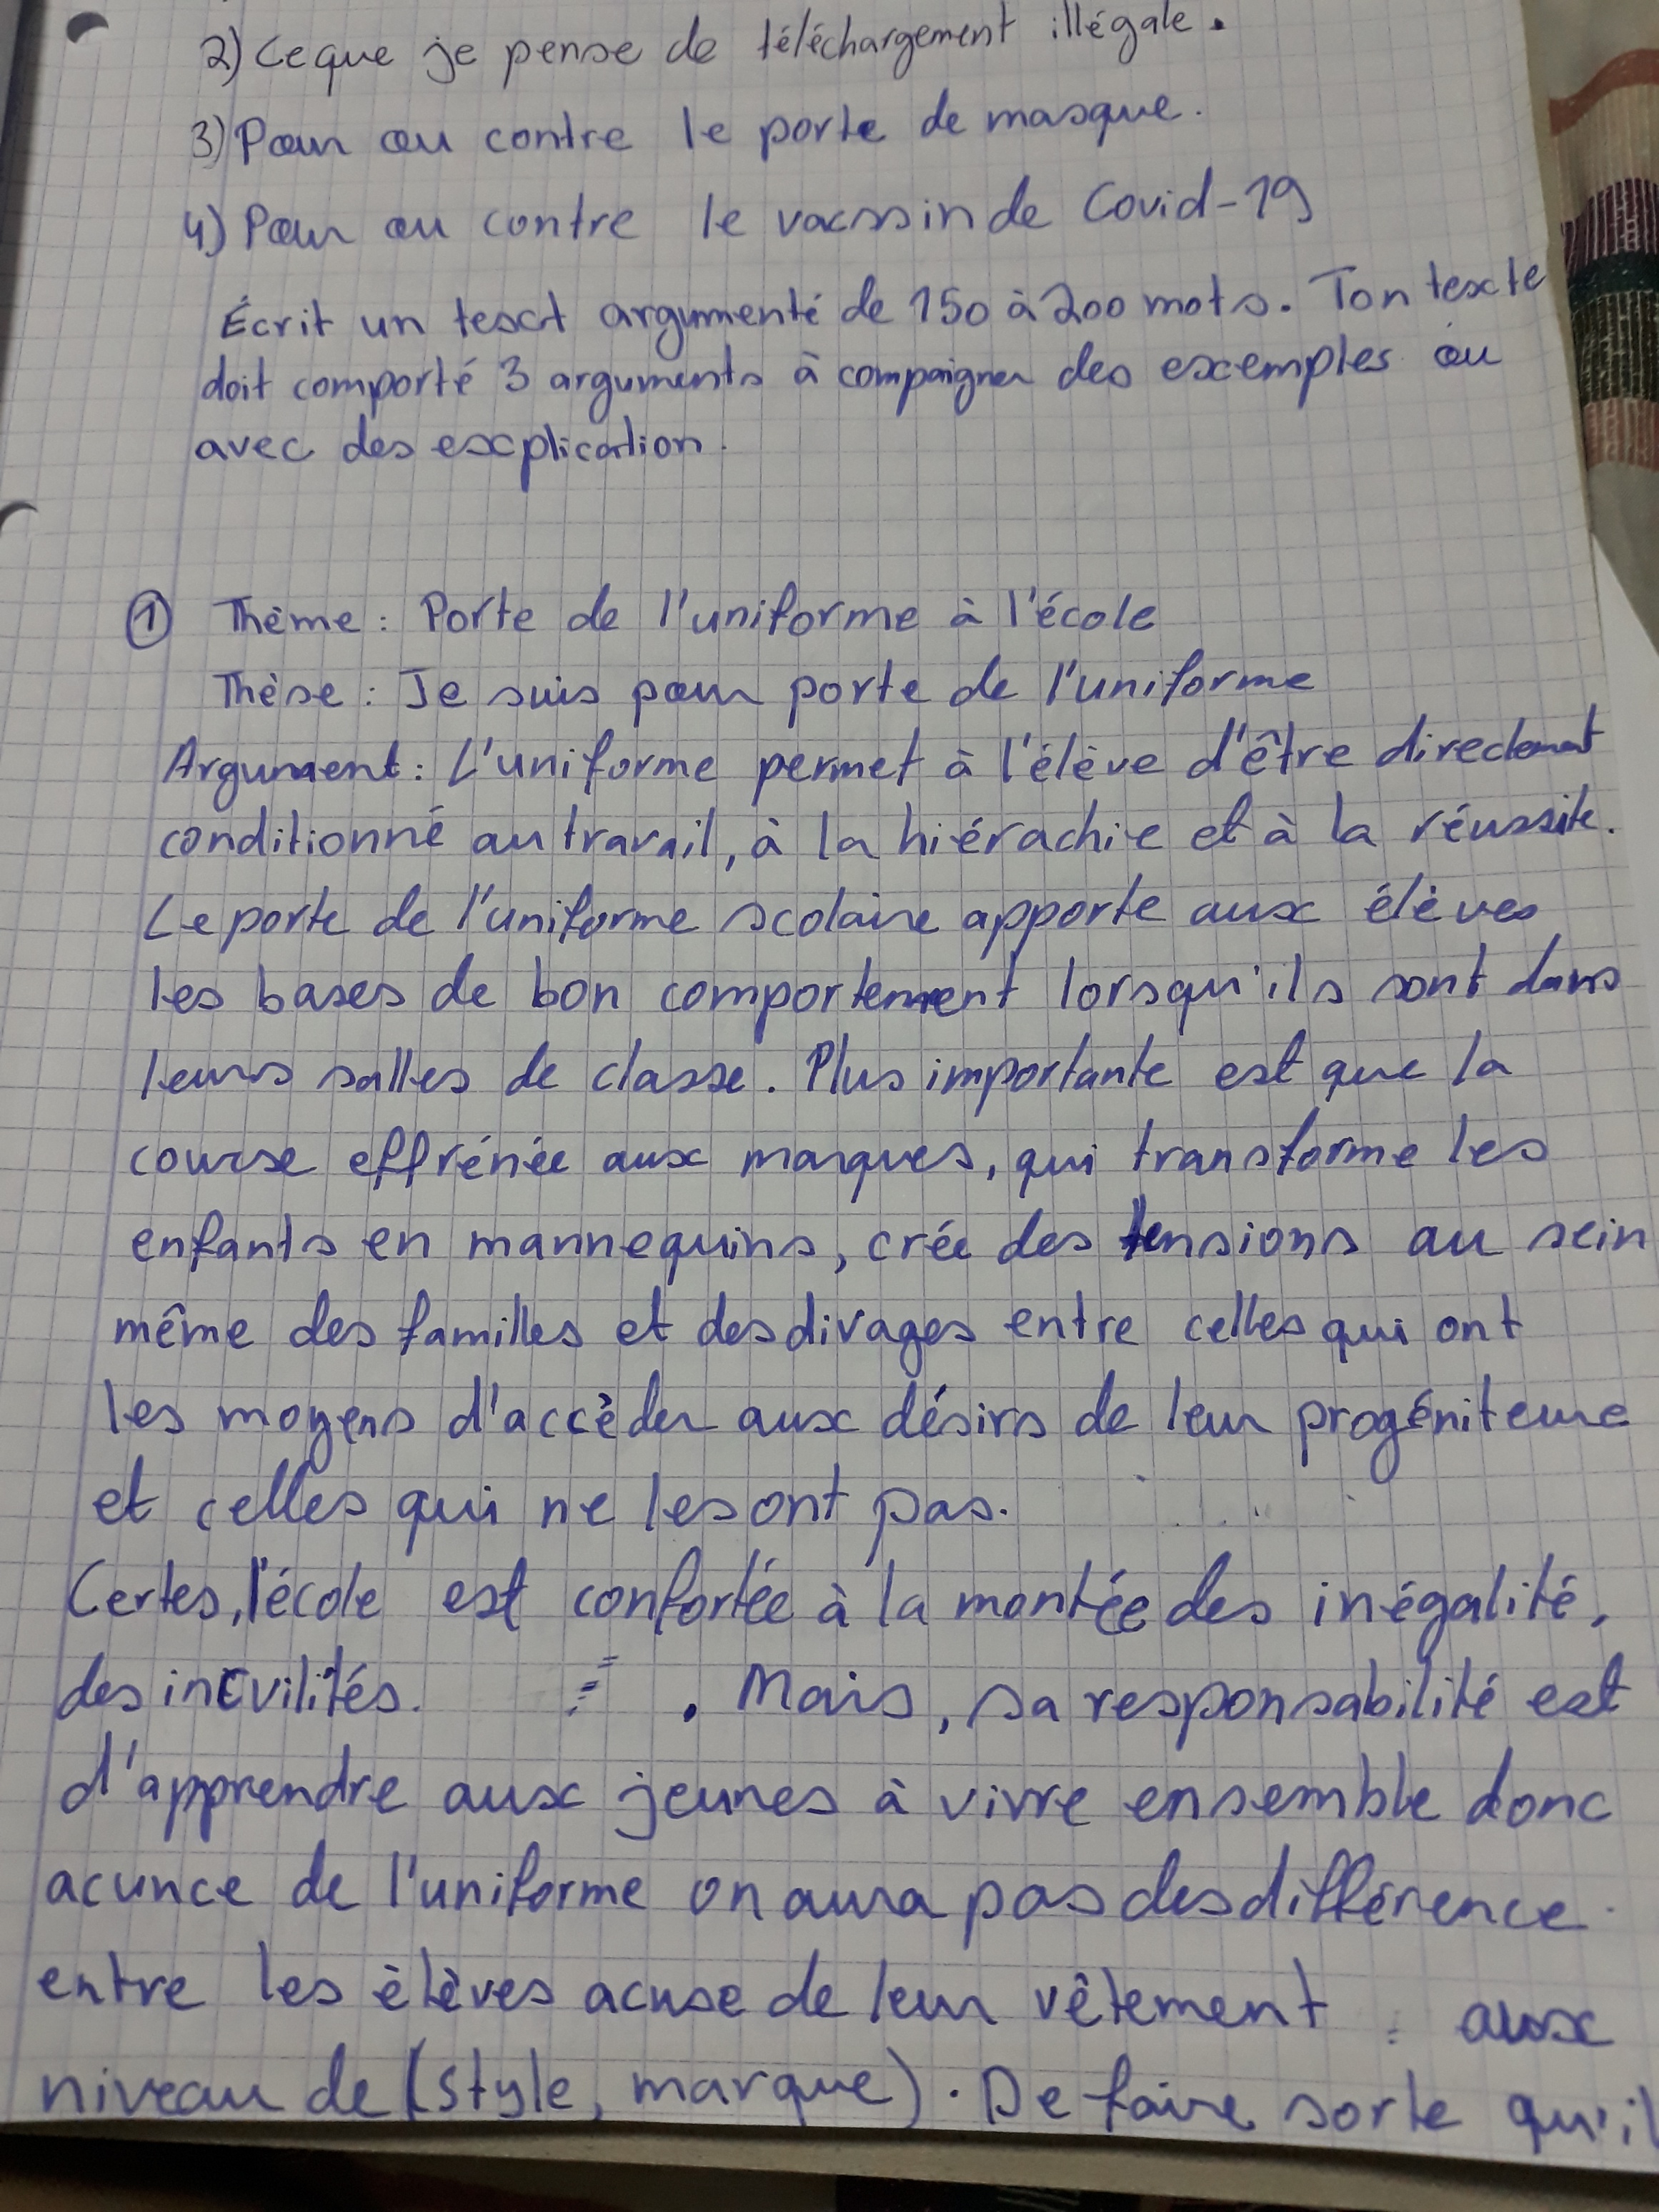 2) Ceque je pense de téléchargement illégale.
3) Pour ou contre le porte de masque.
4) Pour ou contre le vacssin de Covid-19
Écrit un texct argumenté de 150 à 200 mots. Ton texcte
doit comporté 3 arguments à compaigner des excemples ou
avec des excplication.
① Thème : Porte de l'uniforme à l'école
Thèse : Je suis pour porte de l'uniforme
Argument : L'uniforme permet à l'élève d'être directement
conditionné au travail, à la hiérachie et à la réussite.
Le porte de l'uniforme scolaire apporte aux élèves
les bases de bon comportement lorsqu'ils sont dans
leurs salles de classe. Plus importante est que la
course effrénée aux marques, qui transforme les
enfants en mannequins, crée des tensions au sein
même des familles et des divages entre celles qui ont
les moyens d'accèder aux désirs de leur progéniteure
et celles qui ne les ont pas.
Certes, l'école est confortée à la montée des inégalité,
des incvilités. . Mais, sa responsabilité est
d'apprendre aux jeunes à vivre ensemble donc
acunce de l'uniforme on aura pas des différence
entre les élèves acuse de leur vêtement aux
niveau de (style, marque). De faire sorte qu'il